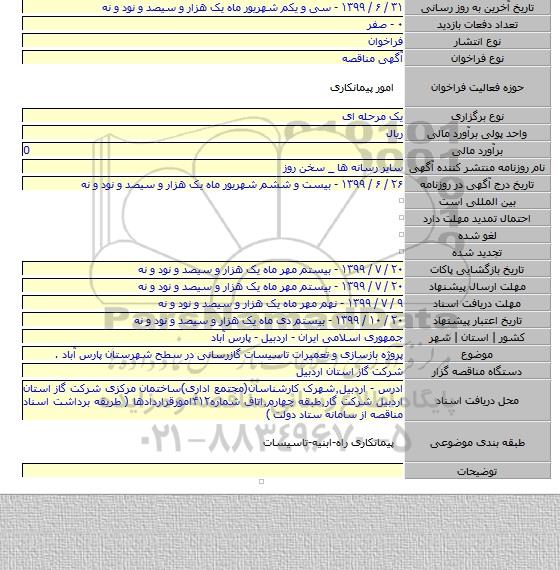 تاریخ آخرین به روز رسانی ۳۱ / ۶ / ۱۳۹۹ - سی و یکم شهریور ماه یک هزار و سیصد و نود و نه
تعداد دفعات بازدید ۰ - صفر
نوع انتشار فراخوان
نوع فراخوان آگهی مناقصه
حوزه فعالیت فراخوان امور پیمانکاری
نوع برگزاری یک مرحله ای
واحد پولی برآورد مالی ریال
برآورد مالی 0
نام روزنامه منتشر کننده آگهی سایر رسانه ها _ سخن روز
تاریخ درج آگهی در روزنامه ۲۶ / ۶ / ۱۳۹۹ - بیست و ششم شهریور ماه یک هزار و سیصد و نود و نه
بین المللی است
احتمال تمدید مهلت دارد
لغو شده
تجدید شده
تاریخ بازگشایی پاکات ۲۰ / ۷ / ۱۳۹۹ - بیستم مهر ماه یک هزار و سیصد و نود و نه
مهلت ارسال پیشنهاد ۲۰ / ۷ / ۱۳۹۹ - بیستم مهر ماه یک هزار و سیصد و نود و نه
مهلت دریافت اسناد ۹ / ۷ / ۱۳۹۹ - نهم مهر ماه یک هزار و سیصد و نود و نه
تاریخ اعتبار پیشنهاد ۲۰ / ۱۰ / ۱۳۹۹ - بیستم دی ماه یک هزار و سیصد و نود و نه
کشور | استان | شهر جمهوری اسلامی ایران - اردبیل - پارس آباد
موضوع پروژه بازسازی و تعمیرات تاسیسات گازرسانی در سطح شهرستان پارس آباد .
دستگاه مناقصه گزار شرکت گاز استان اردبیل
محل دریافت اسناد آدرس - اردبیل شهرک کارشناسان(مجتمع اداری)ساختمان مرکزی شرکت گاز استان
اردبیل شرکت گاز,طبقه چهارم,اتاق شماره۴۱۲امورقراردادها ( طریقه برداشت اسناد
مناقصه از سامانه ستاد دولت )
طبقه بندی موضوعی پیمانکاری راه-ابنیه-تاسیسات
توضیحات
۰۲۱-۸۸۳۴۹۶۷۰-۵